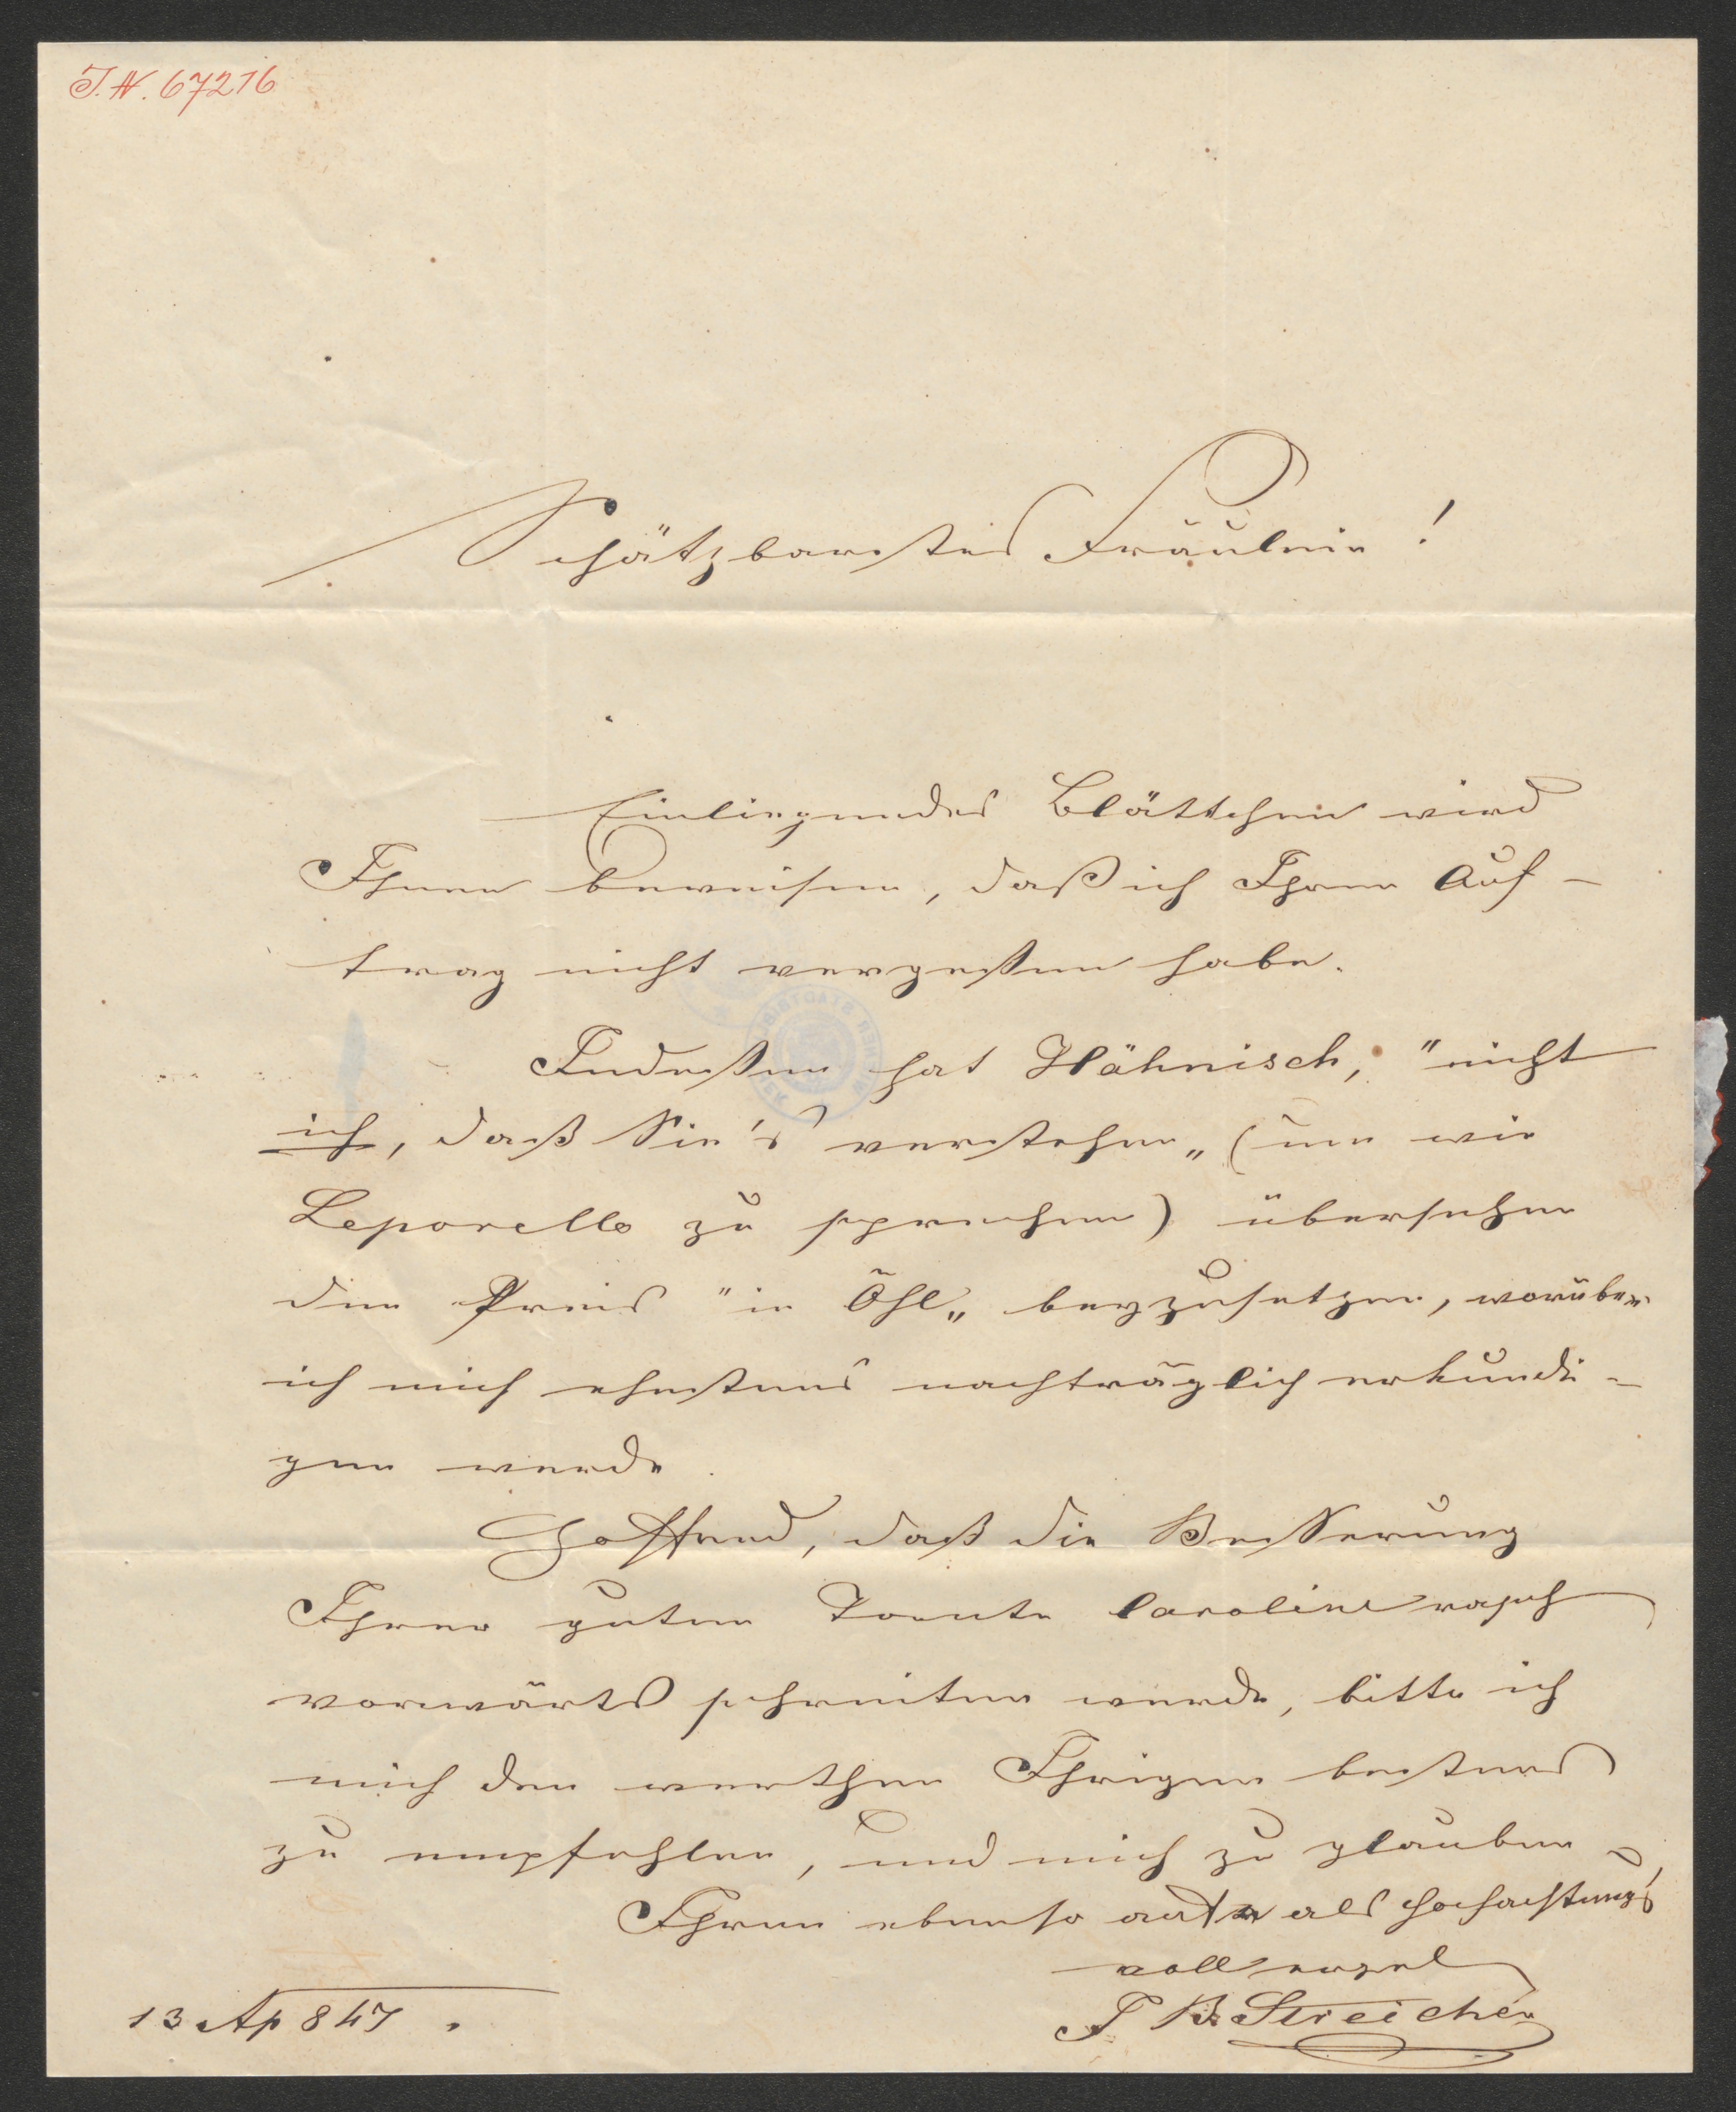 J.N. 67216
Schätzbarstes Fräulein!
Einliegendes Blättchen wird
Ihnen beweisen, daß ich Ihren Auf-
trag nicht vergessen habe.
Indessen hat Hähnisch, "nicht
ich, daß Sie's verstehen„ (um wie
Leporello zu sprechen) übersehen
den Preis "in Öhl„ beyzusetzen, worüber
ich mich ehestens nachträglich erkundi-
gen werde.
Hoffend, daß die Besserung
Ihrer guten Tante Caroline rasch
vorwärts schreiten werde, bitte ich
mich den werthen Ihrigen bestens
zu empfehlen, und mich zu glauben
Ihren ebenso als hochachtungs
voll
13 Ap 847.
J B Streicher